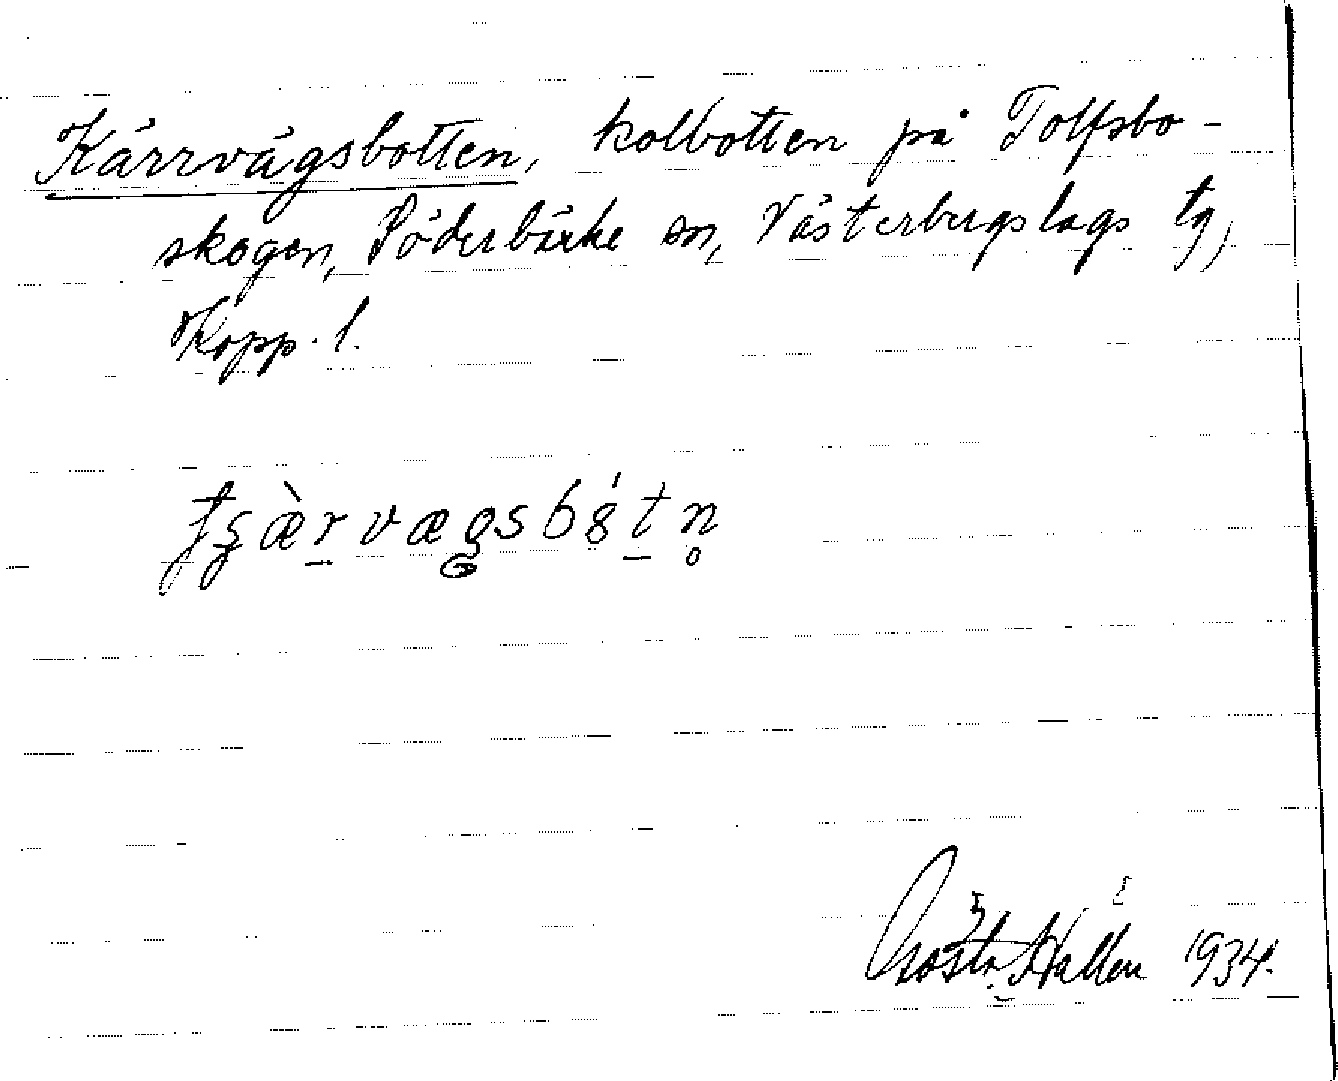 Kärrvägsbotten, kolbotten på Tolfsbo-
skogen, Söderbärke sn, Västerbergslags tg,
Kopp. l.
Gösta Hallén 1934.